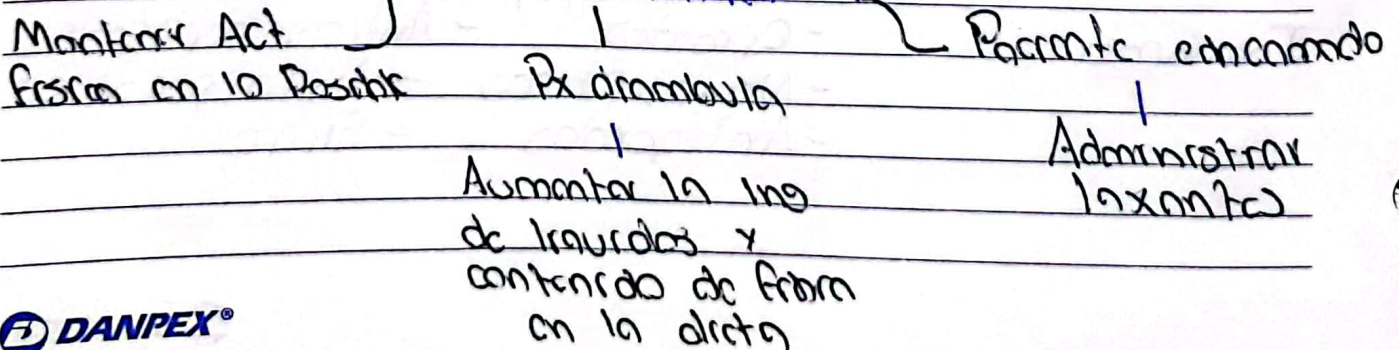 Mantener Act
física en lo Posible
Px deambula
Aumentar la ing
de líquidos y
contenido de fibra
en la dieta
Paciente encamado
Administrar
laxantes
DANPEX®